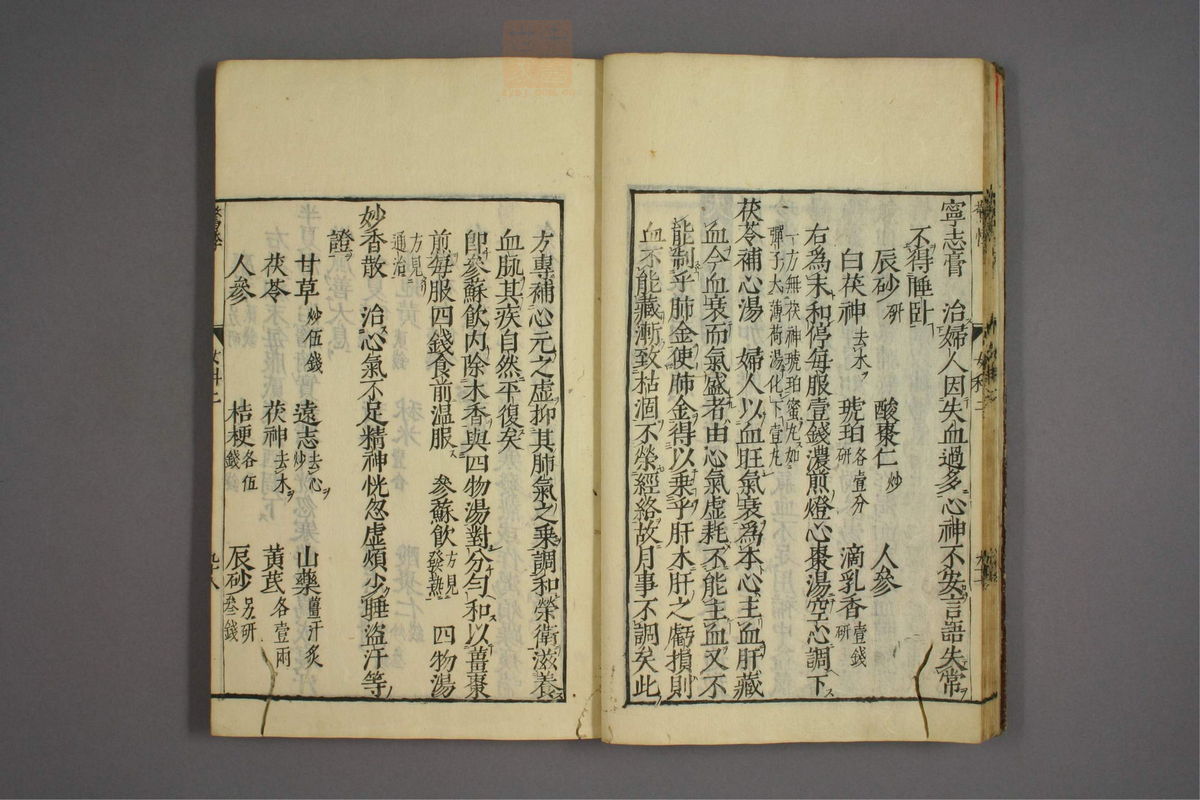 寧志膏　治婦人因失血過多心神不安言語失常
不得睡臥
辰砂研　酸棗仁炒　人參
白茯神去木　琥珀各壹分研　滴乳香壹錢研
右為末和停每服壹錢濃煎燈心棗湯空心調下
一方無茯神琥珀蜜丸如彈子大薄荷湯化下壹丸
茯苓補心湯　婦人以血旺氣衰為本心主血肝藏
血今血衰而氣盛者由心氣虛耗不能主血又不
能制乎肺金使肺金得以乘乎肝木肝之虧損則
血不能藏漸致枯涸不榮經絡故月事不調矣此
方專補心元之虛抑其肺氣之乘調和榮衛滋養
血脉其疾自然平復矣
即參蘇飲內除木香與四物湯對分勻和以薑棗
煎每服四錢食前温服　參蘇飲方見發熱　四物湯
方見通治
妙香散　治心氣不足精神恍忽虛煩少睡盜汗等
證
甘草炒伍錢　遠志去心炒　山藥薑汁炙
茯苓　茯神去木　黃芪各壹兩
人參　桔梗各伍錢　辰砂另研叁錢
女科二
九八